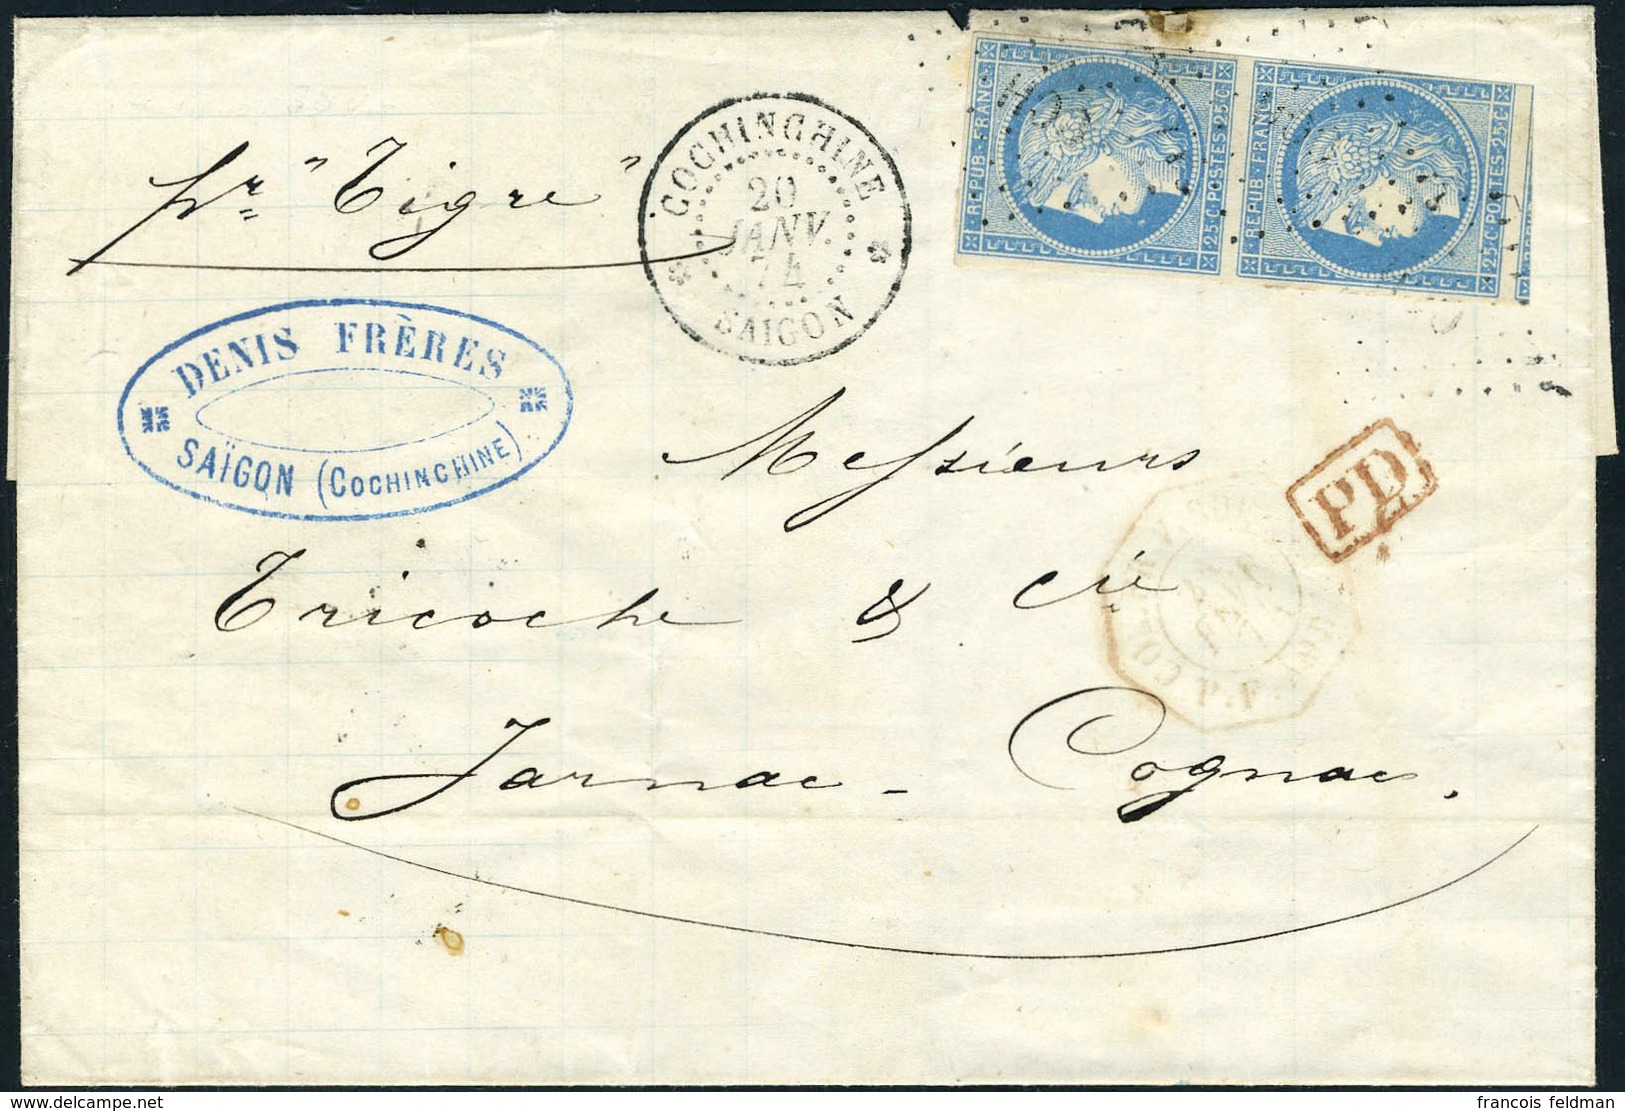 pr. "Tigre"
COCHINCHINE
20
JANV.
74
SAIGON
REPUB·FRANC·
25 C·POSTES·25 C
REPUB·FRANC·
25 C·POSTES·25 C
DENIS FRÈRES
SAÏGON (COCHINCHINE)
PD
Messieurs
Tricoche & Cie
Jarnac - Cognac.
delcampe.net
francois feldman